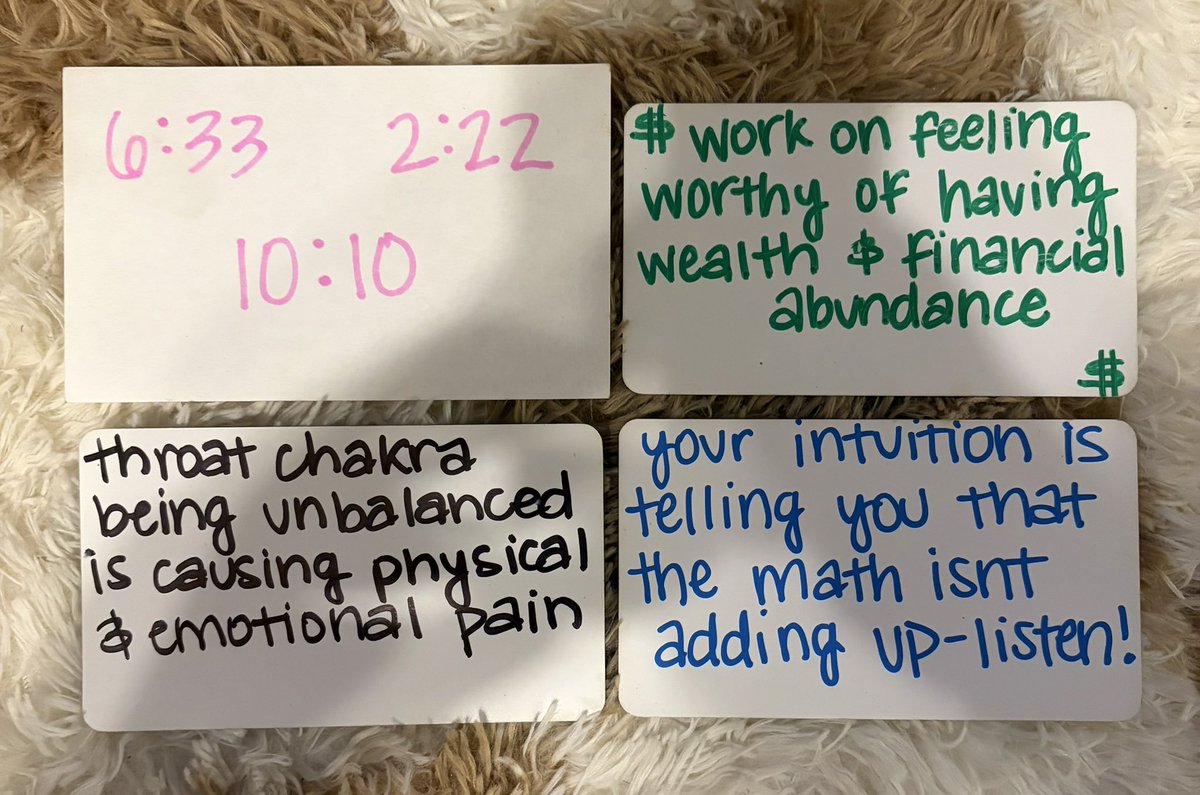 6:33 2:22
10:10
$ work on feeling
worthy of having
wealth & financial
abundance
$
throat chakra
being unbalanced
is causing physical
& emotional pain
your intuition is
telling you that
the math isnt
adding up-listen!